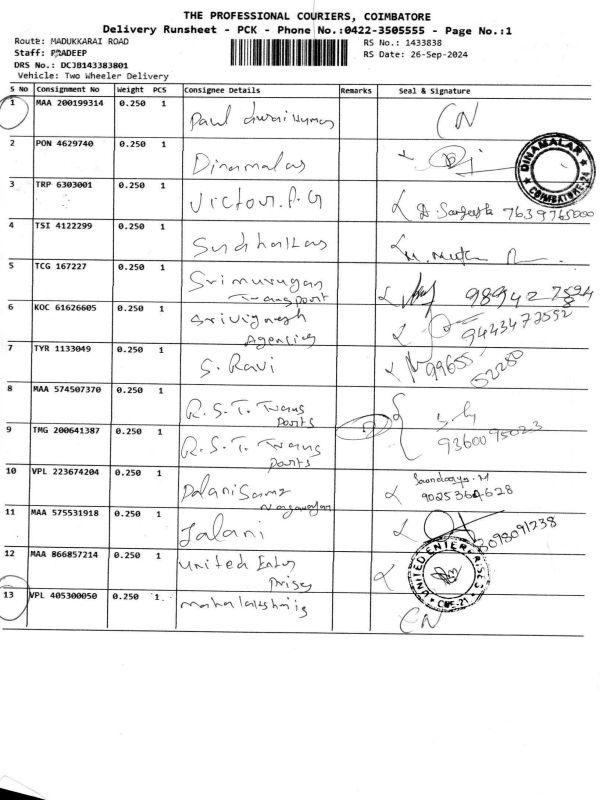 THE PROFESSIONAL COURIERS, COIMBATORE
Delivery Runsheet - PCK - Phone No.:0422-3505555 - Page No.:1
Route: MADUKKARAI ROAD RS No.: 1433838
Staff: PRADEEP RS Date: 26-Sep-2024
DRS No.: DCJB143383801
Vehicle: Two Wheeler Delivery
S No Consignment No Weight PCS Consignee Details Remarks Seal & Signature
1 MAA 200199314 0.250 1 Paul CN
2 PON 4629740 0.250 1 Dinamalar DINAMALAR COIMBATORE-24
3 TRP 6303001 0.250 1 Victour.P.G 7639765000
4 TSI 4122299 0.250 1 Sudhakar
5 TCG 167227 0.250 1 Srimurugan
Transport
6 KOC 61626605 0.250 1 Srivignesh 9443472552
Agencies
7 TYR 1133049 0.250 1 S. Ravi 99655
52280
8 MAA 574507370 0.250 1 R.S.T. Trans
Ports
9 TMG 200641387 0.250 1 R.S.T. Trans 9360095023
Ports
10 VPL 223674204 0.250 1 9025364628
11 MAA 575531918 0.250 1 Jalani 8098091238
12 MAA 866857214 0.250 1 United Enter UNITED ENTERPRISES CBE-21
Prises
13 VPL 405300050 0.250 1 CN